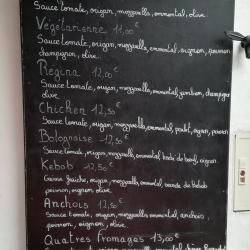 Sauce tomate, origan, mozzarella, emmental, olive.
Végétarienne 11,00€
Sauce tomate, origan, mozzarella, emmental, oignon, poivron
champignon, olive.
Régina 12,00€
Sauce tomate, origan, mozzarella, emmental, jambon, champignon
olive.
Chicken 12,50€
Sauce tomate, origan, mozzarella, emmental, poulet, oignon, poivron
Bolognaise 12,50€
Sauce tomate, origan, mozzarella, emmental, haché de boeuf, oignon
Kebab 12,50€
Crème fraîche, origan, mozzarella, emmental, viande de kebab
poivron, oignon, olive.
Anchois 12,50€
Sauce tomate, origan, mozzarella, emmental, anchois,
poivron, oignon, olive.
Quatres fromages 13,00€